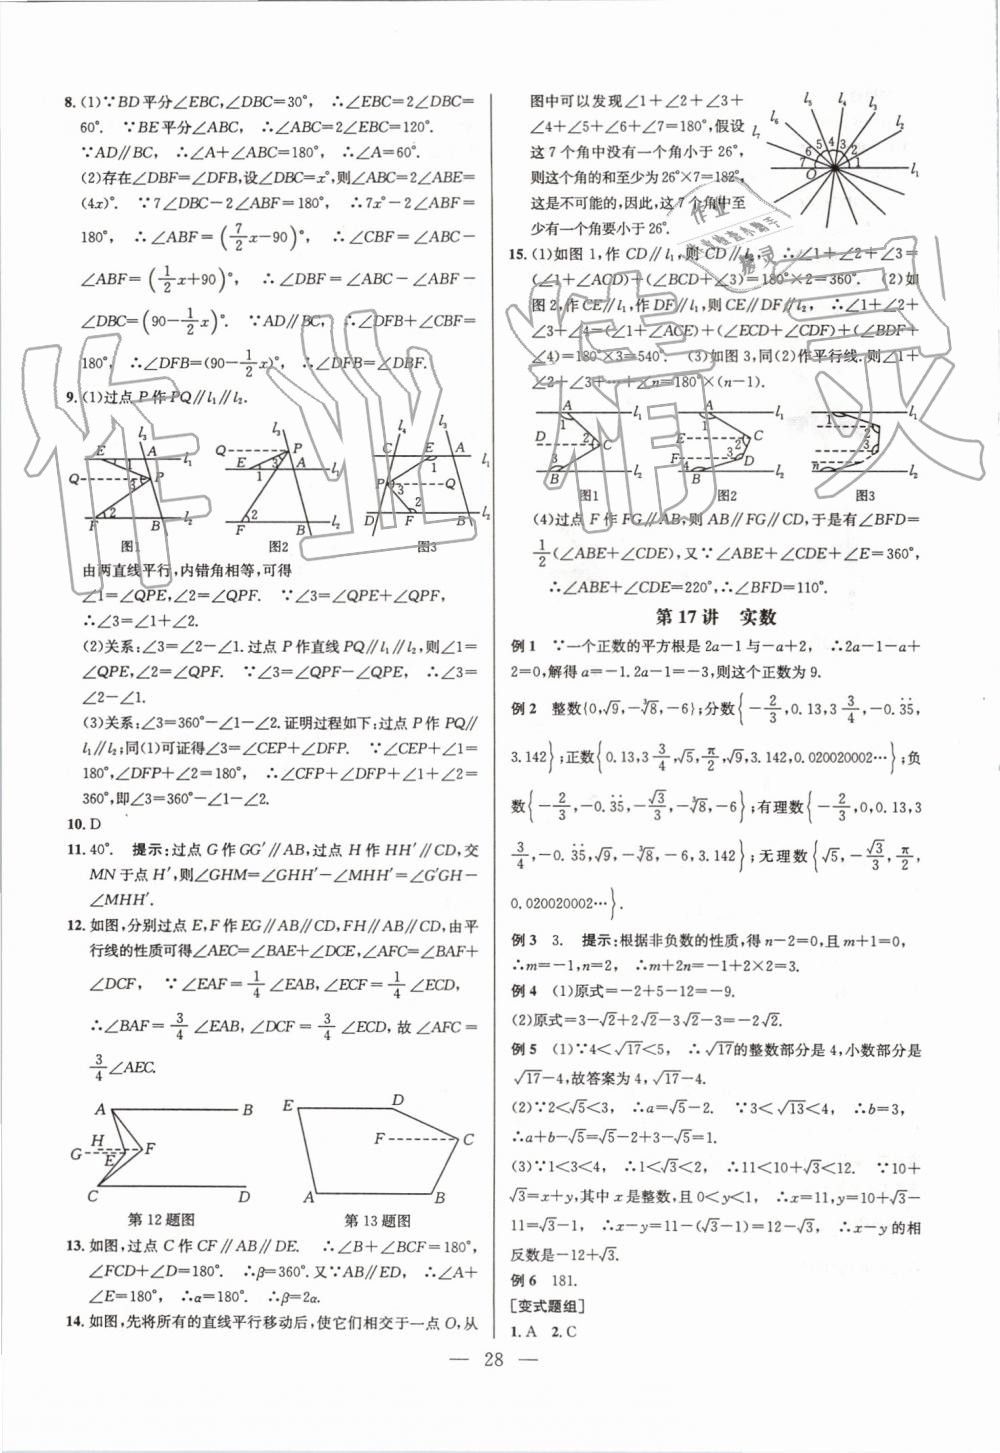 8. (1)∵BD平分∠EBC,∠DBC=30°, ∴∠EBC=2∠DBC=
60°. ∵BE平分∠ABC, ∴∠ABC=2∠EBC=120°.
∵AD∥BC, ∴∠A+∠ABC=180°, ∴∠A=60°.
(2)存在∠DBF=∠DFB,设∠DBC=x°,则∠ABC=2∠ABE=
(4x)°. ∵7∠DBC-2∠ABF=180°, ∴7x°-2∠ABF=
180°, ∴∠ABF=(7/2x-90)°. ∴∠CBF=∠ABC-
∠ABF=(1/2x+90)°. ∴∠DBF=∠ABC-∠ABF-
∠DBC=(90-1/2x)°. ∵AD∥BC, ∴∠DFB+∠CBF=
180°, ∴∠DFB=(90-1/2x)°, ∴∠DFB=∠DBF.
9. (1)过点P作PQ∥l₁∥l₂.
图1 图2 图3
由两直线平行,内错角相等,可得
∠1=∠QPE,∠2=∠QPF. ∵∠3=∠QPE+∠QPF,
∴∠3=∠1+∠2.
(2)关系:∠3=∠2-∠1.过点P作直线PQ∥l₁∥l₂,则∠1=
∠QPE,∠2=∠QPF. ∵∠3=∠QPF-∠QPE, ∴∠3=
∠2-∠1.
(3)关系:∠3=360°-∠1-∠2.证明过程如下:过点P作PQ∥
l₁∥l₂;同(1)可证得∠3=∠CEP+∠DFP. ∵∠CEP+∠1=
180°,∠DFP+∠2=180°, ∴∠CFP+∠DFP+∠1+∠2=
360°,即∠3=360°-∠1-∠2.
10. D
11. 40°. 提示:过点G作GG′∥AB,过点H作HH′∥CD,交
MN于点H′,则∠GHM=∠GHH′-∠MHH′=∠G′GH-
∠MHH′.
12. 如图,分别过点E,F作EG∥AB∥CD,FH∥AB∥CD,由平
行线的性质可得∠AEC=∠BAE+∠DCE,∠AFC=∠BAF+
∠DCF, ∵∠EAF=1/4∠EAB,∠ECF=1/4∠ECD,
∴∠BAF=3/4∠EAB,∠DCF=3/4∠ECD,故∠AFC=
3/4∠AEC.
第12题图 第13题图
13. 如图,过点C作CF∥AB∥DE. ∴∠B+∠BCF=180°,
∠FCD+∠D=180°. ∴β=360°.又∵AB∥ED, ∴∠A+
∠E=180°, ∴α=180°. ∴β=2α.
14. 如图,先将所有的直线平行移动后,使它们相交于一点O,从
图中可以发现∠1+∠2+∠3+
∠4+∠5+∠6+∠7=180°,假设
这7个角中没有一个角小于26°,
则这个角的和至少为26°×7=182°,
这是不可能的,因此,这7个角中至
少有一个角要小于26°.
15. (1)如图1,作CD∥l₁,则CD∥l₂, ∴∠1+∠2+∠3=
(∠1+∠ACD)+(∠BCD+∠3)=180°×2=360°. (2)如
图2,作CE∥l₁,作DF∥l₁,则CE∥DF∥l₂, ∴∠1+∠2+
∠3+∠4=(∠1+∠ACE)+(∠ECD+∠CDF)+(∠BDF+
∠4)=180°×3=540°. (3)如图3,同(2)作平行线.则∠1+
∠2+∠3+…+∠n=180°×(n-1).
图1 图2 图3
(4)过点F作FG∥AB,则AB∥FG∥CD,于是有∠BFD=
1/2(∠ABE+∠CDE),又∵∠ABE+∠CDE+∠E=360°,
∴∠ABE+∠CDE=220°,∴∠BFD=110°.
第17讲 实数
例1 ∵一个正数的平方根是2a-1与-a+2, ∴2a-1-a+
2=0,解得a=-1.2a-1=-3,则这个正数为9.
例2 整数{0,√9,-∛8,-6};分数{-2/3,0.13,3 3/4,-0.3̇5̇,
3.142};正数{0.13,3 3/4,√5,π/2,√9,3.142,0.020020002…};负
数{-2/3,-0.3̇5̇,-√3/3,-∛8,-6};有理数{-2/3,0,0.13,3
3/4,-0.3̇5̇,√9,-∛8,-6,3.142};无理数{√5,-√3/3,π/2,
0.020020002…}.
例3 3. 提示:根据非负数的性质,得n-2=0,且m+1=0,
∴m=-1,n=2, ∴m+2n=-1+2×2=3.
例4 (1)原式=-2+5-12=-9.
(2)原式=3-√2+2√2-3√2-3=-2√2.
例5 (1)∵4<√17<5, ∴√17的整数部分是4,小数部分是
√17-4,故答案为4,√17-4.
(2)∵2<√5<3, ∴a=√5-2. ∵3<√13<4, ∴b=3,
∴a+b-√5=√5-2+3-√5=1.
(3)∵1<3<4, ∴1<√3<2, ∴11<10+√3<12. ∵10+
√3=x+y,其中x是整数,且0<y<1, ∴x=11,y=10+√3-
11=√3-1, ∴x-y=11-(√3-1)=12-√3, ∴x-y的相
反数是-12+√3.
例6 181.
[变式题组]
1. A 2. C
— 28 —